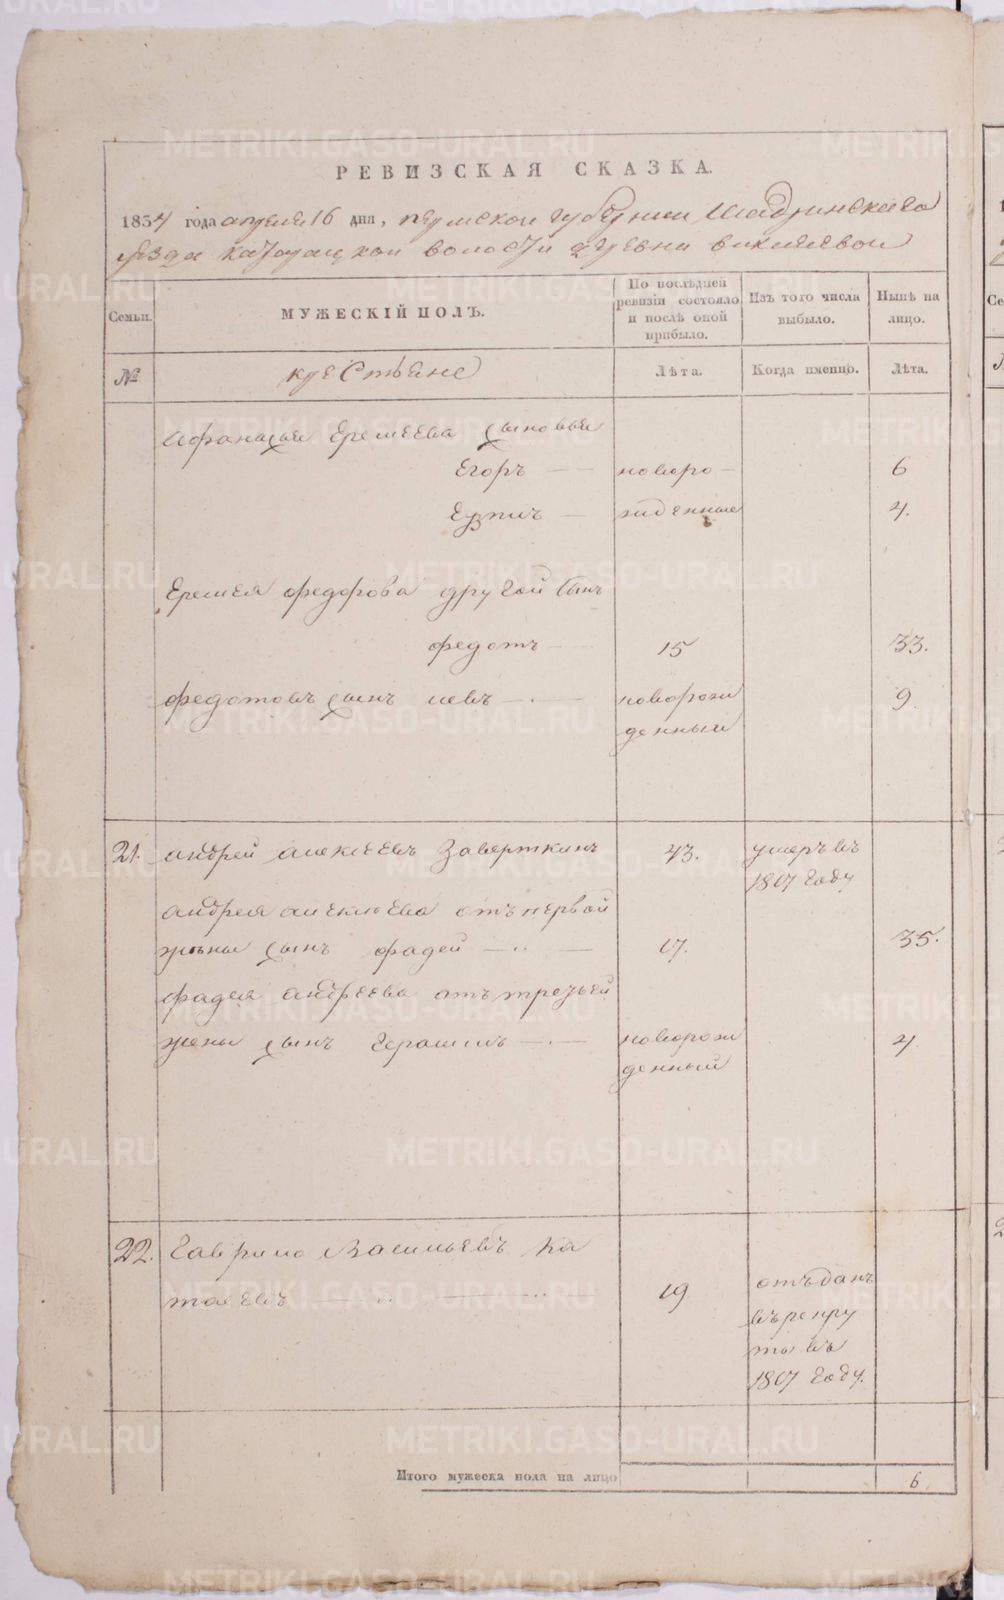 РЕВИЗСКАЯ СКАЗКА.
1834 года апреля 16 дня, пермской губернии Шадринскаго
уезда катайской волости деревни
Семьи.
МУЖЕСКІЙ ПОЛЪ.
По послѣдней ревизіи состояло и послѣ оной прибыло.
Изъ того числа выбыло.
Нынѣ на лицо.
№
крестьяне
Лѣта.
Когда именно.
Лѣта.
Афанасья Еремеева сыновья
Егоръ новоро 6
жденные 4.
Еремея федорова другой сынъ
федотъ 15 33.
федотовъ сынъ иевъ новорож 9.
денный
21. андрей алексеевъ Заверткинъ 43. умеръ въ
1807 году
андрея алексеева отъ первой
жены сынъ фадей 17. 35.
фадея андреева отъ третьей
жены сынъ Герасимъ новорож 4.
денный
22. Гаврило Васильевъ Ка
таевъ 19 отъданъ
въ рекру
ты въ
1807 году.
Итого мужеска пола на лицо 6
METRIKI.GASO-URAL.RU